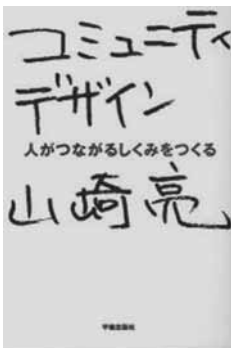 コミュニティ
デザイン
人がつながるしくみをつくる
山崎亮
学芸出版社